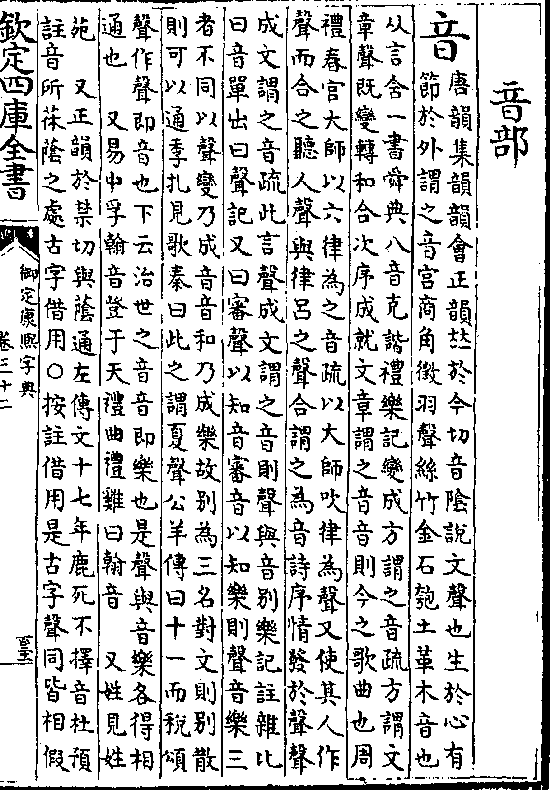 音部
音
唐韻集韻韻會正韻𠀤於今切音陰說文聲也生於心有
節於外謂之音宮商角徵羽聲絲竹金石匏土革木音也
从言含一書舜典八音克諧禮樂記變成方謂之音疏方謂文
章聲既變轉和合次序成就文章謂之音音則今之歌曲也周
禮春官大師以六律為之音疏以大師吹律為聲又使其人作
聲而合之聽人聲與律呂之聲合謂之為音詩序情發於聲聲
成文謂之音疏此言聲成文謂之音則聲與音別樂記註雜比
曰音單出曰聲記又曰審聲以知音審音以知樂則聲音樂三
者不同以聲變乃成音音和乃成樂故別為三名對文則別散
則可以通季札見歌秦曰此之謂夏聲公羊傳曰十一而稅頌
聲作聲即音也下云治世之音音即樂也是聲與音樂各得相
通也 又易中孚翰音登于天禮曲禮雞曰翰音 又姓見姓
苑 又正韻於禁切與蔭通左傳文十七年鹿死不擇音杜預
註音所茠蔭之處古字借用○按註借用是古字聲同皆相假
欽定四庫全書
御定康熙字典
卷三十二